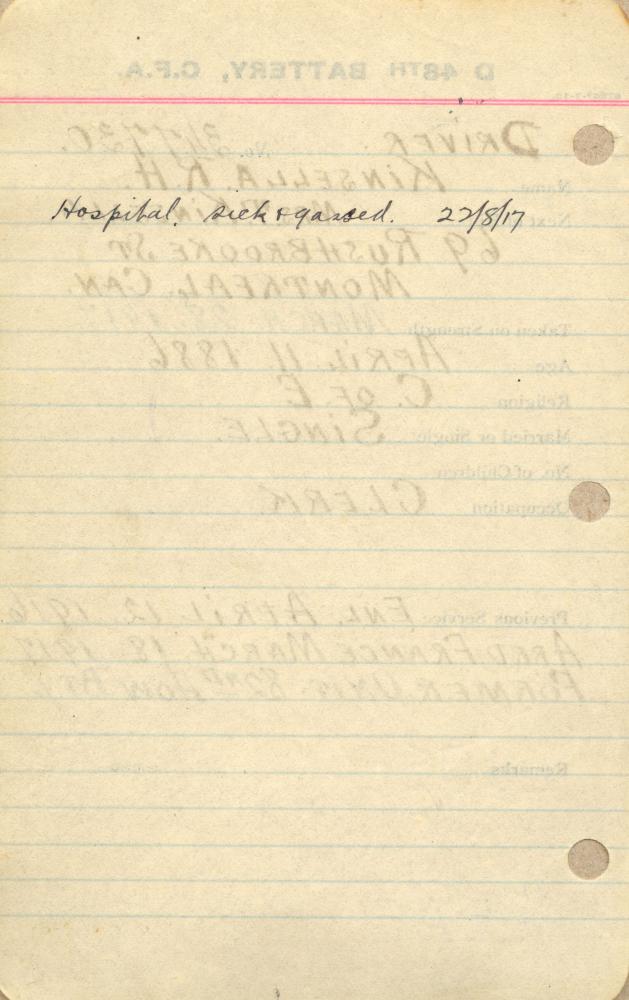 D 48TH BATTERY, C.F.A.
DRIVER No.
Name KINSELLA R.H
Hospital. sick & gassed. 22/8/17
69 RUSHBROOKE ST
MONTREAL, CAN.
Taken on Strength MARCH 1917
Age APRIL 11 1886
Religion C. OF E.
Married or Single SINGLE.
No. of Children
Occupation CLERK
Previous Service ENL. APRIL 12. 1916
ARRD FRANCE MARCH 18 1917
FORMER UNIT 82ND HOW BTY
Remarks